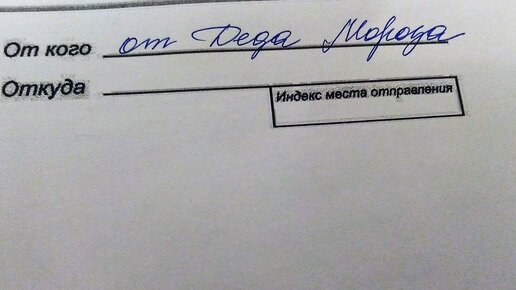 От кого от Деда Мороза
Откуда
Индекс места отправления